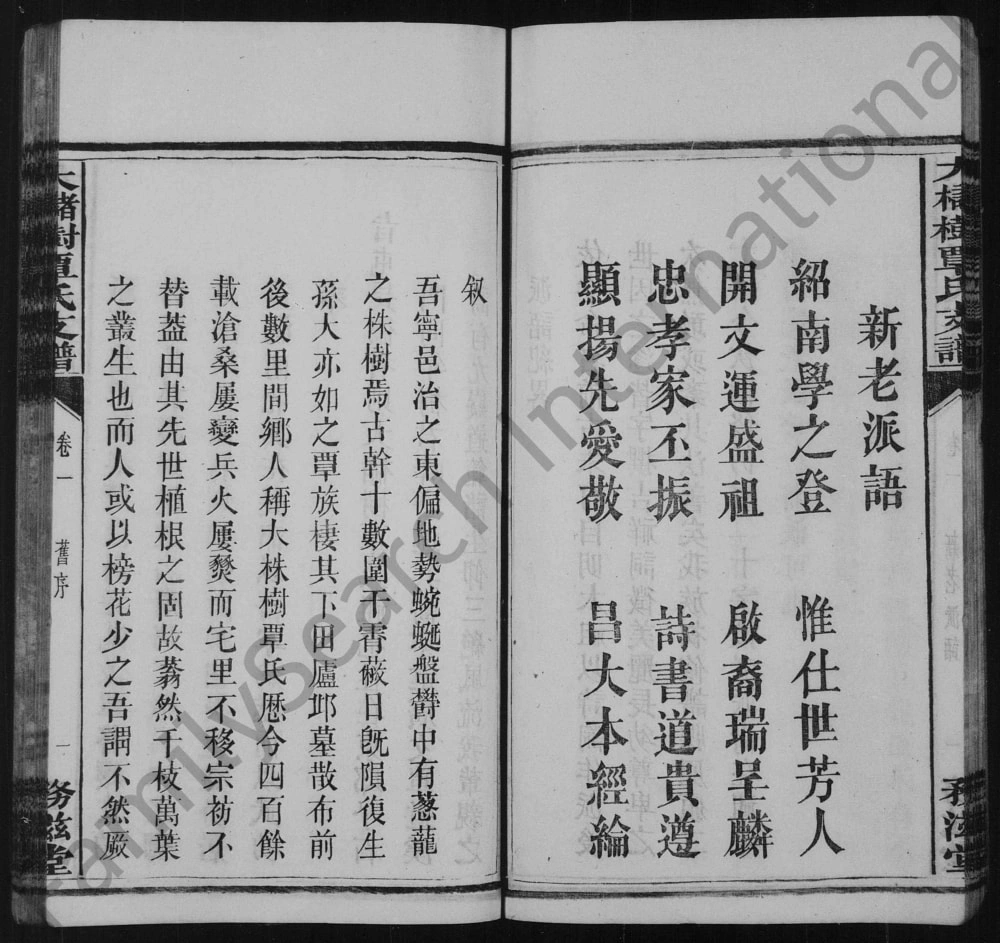 大櫧樹覃氏支譜
務滋堂
新老派語
紹南學之登 惟仕世芳人
開文運盛祖 啟裔瑞呈麟
忠孝家丕振 詩書道貴遵
顯揚先愛敬 昌大本經綸
叙
吾寧邑治之東偏地勢蜿蜒盤欝中有蔥蘢
之株樹焉古幹十數圍干霄蔽日旣隕復生
孫大亦如之覃族棲其下田廬邱墓散布前
後數里間鄉人稱大株樹覃氏歷今四百餘
載滄桑屢變兵火屢燹而宅里不移宗祊不
替葢由其先世植根之固故蓊然千枝萬葉
之叢生也而人或以榜花少之吾謂不然厥
大櫧樹覃氏支譜
卷一
舊序
一
務滋堂
FamilySearch International